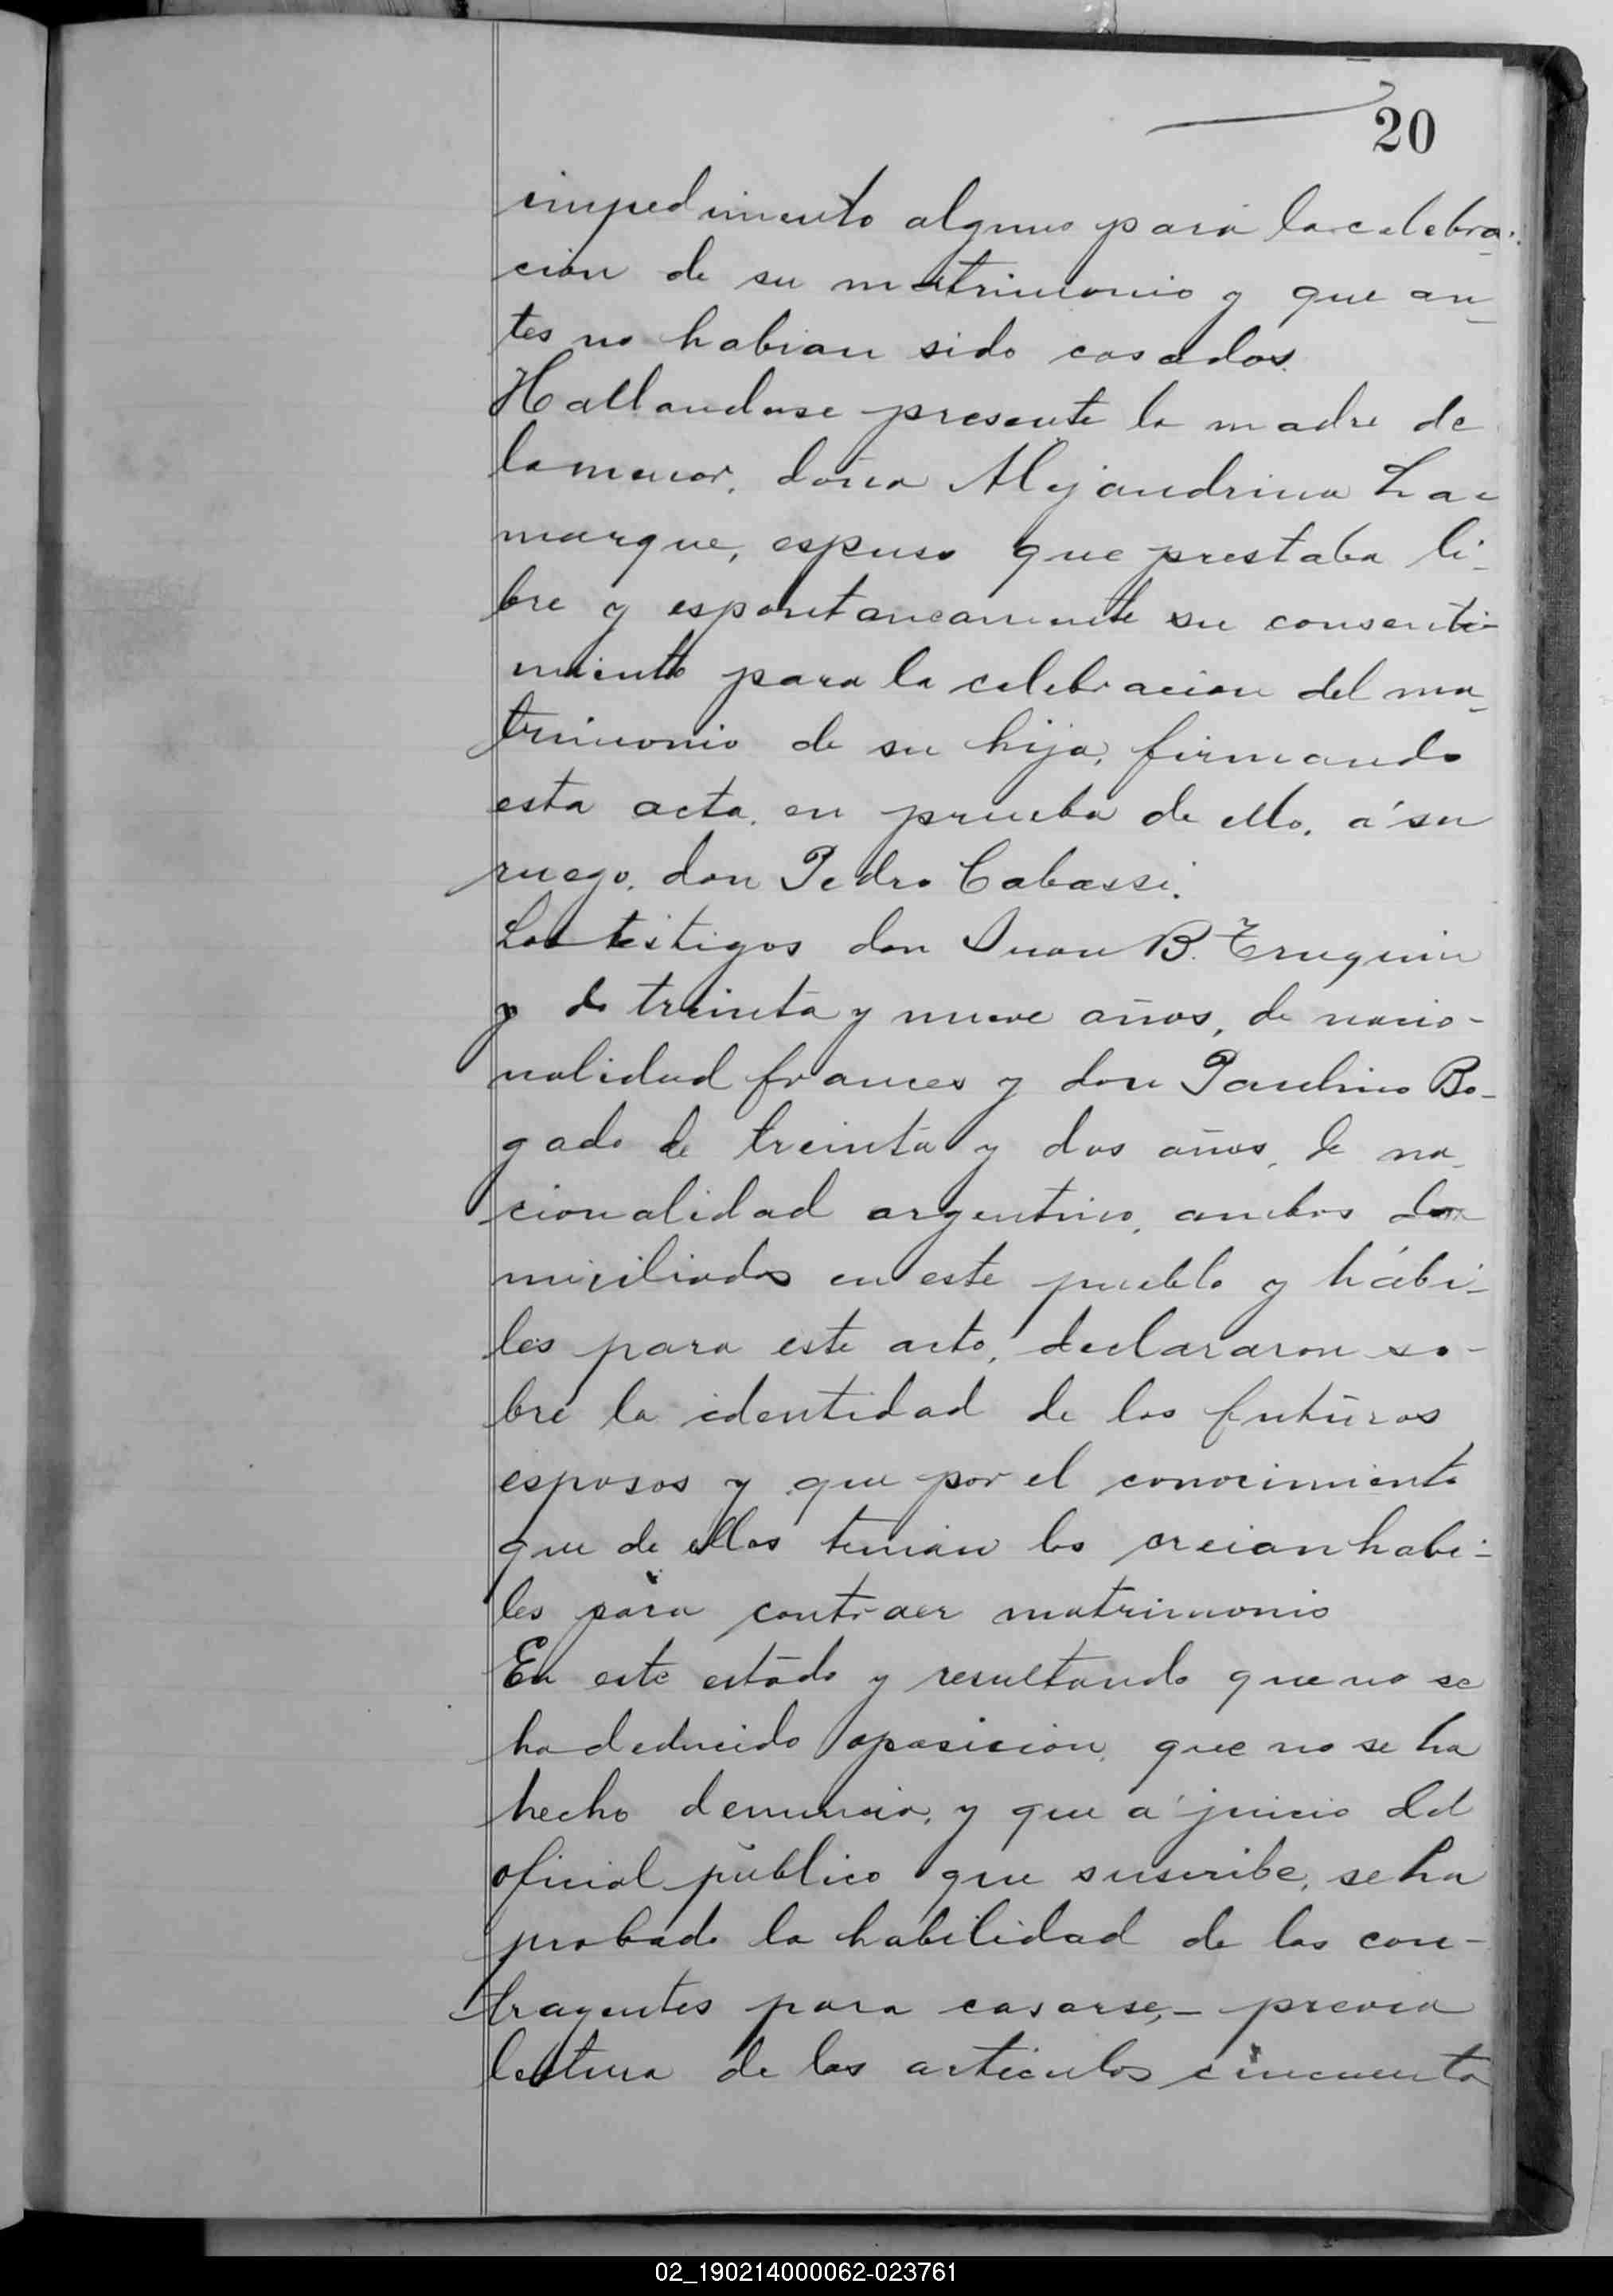 20
impedimento alguno para la celebra-
cion de su matrimonio y que an-
tes no habian sido casados.
Hallandose presente la madre de
la menor, doña Alejandrina La-
marque, espuso que prestaba li-
bre y espontaneamente su consenti-
miento para la celebracion del ma-
trimonio de su hija, firmando
esta acta, en prueba de ello, á su
ruego, don Pedro Cabassi.
Los testigos don Juan B.
y de treinta y nueve años, de nacio-
nalidad frances y don Paulino Bo-
gado de treinta y dos años, de na-
cionalidad argentino, ambos do-
miciliados en este pueblo y hábi-
les para este acto, declararon so-
bre la identidad de los futuros
esposos y que por el conocimiento
que de ellos tenian los creian habi-
les para contraer matrimonio
En este estado y resultando que no se
ha deducido oposicion, que no se ha
hecho denuncia, y que á juicio del
oficial público que suscribe, se ha
probado la habilidad de los con-
trayentes para casarse,- previa
lectura de los artículos cincuenta
02_190214000062-023761